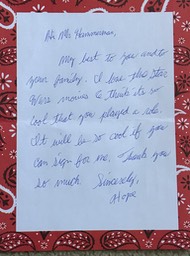 Mr. Hammerman,
My best to you and to
your family. I love the Star
Wars movies & think its so
cool that you played a role.
It will be so cool if you
can sign for me. Thank you
so much. Sincerely,
Hope